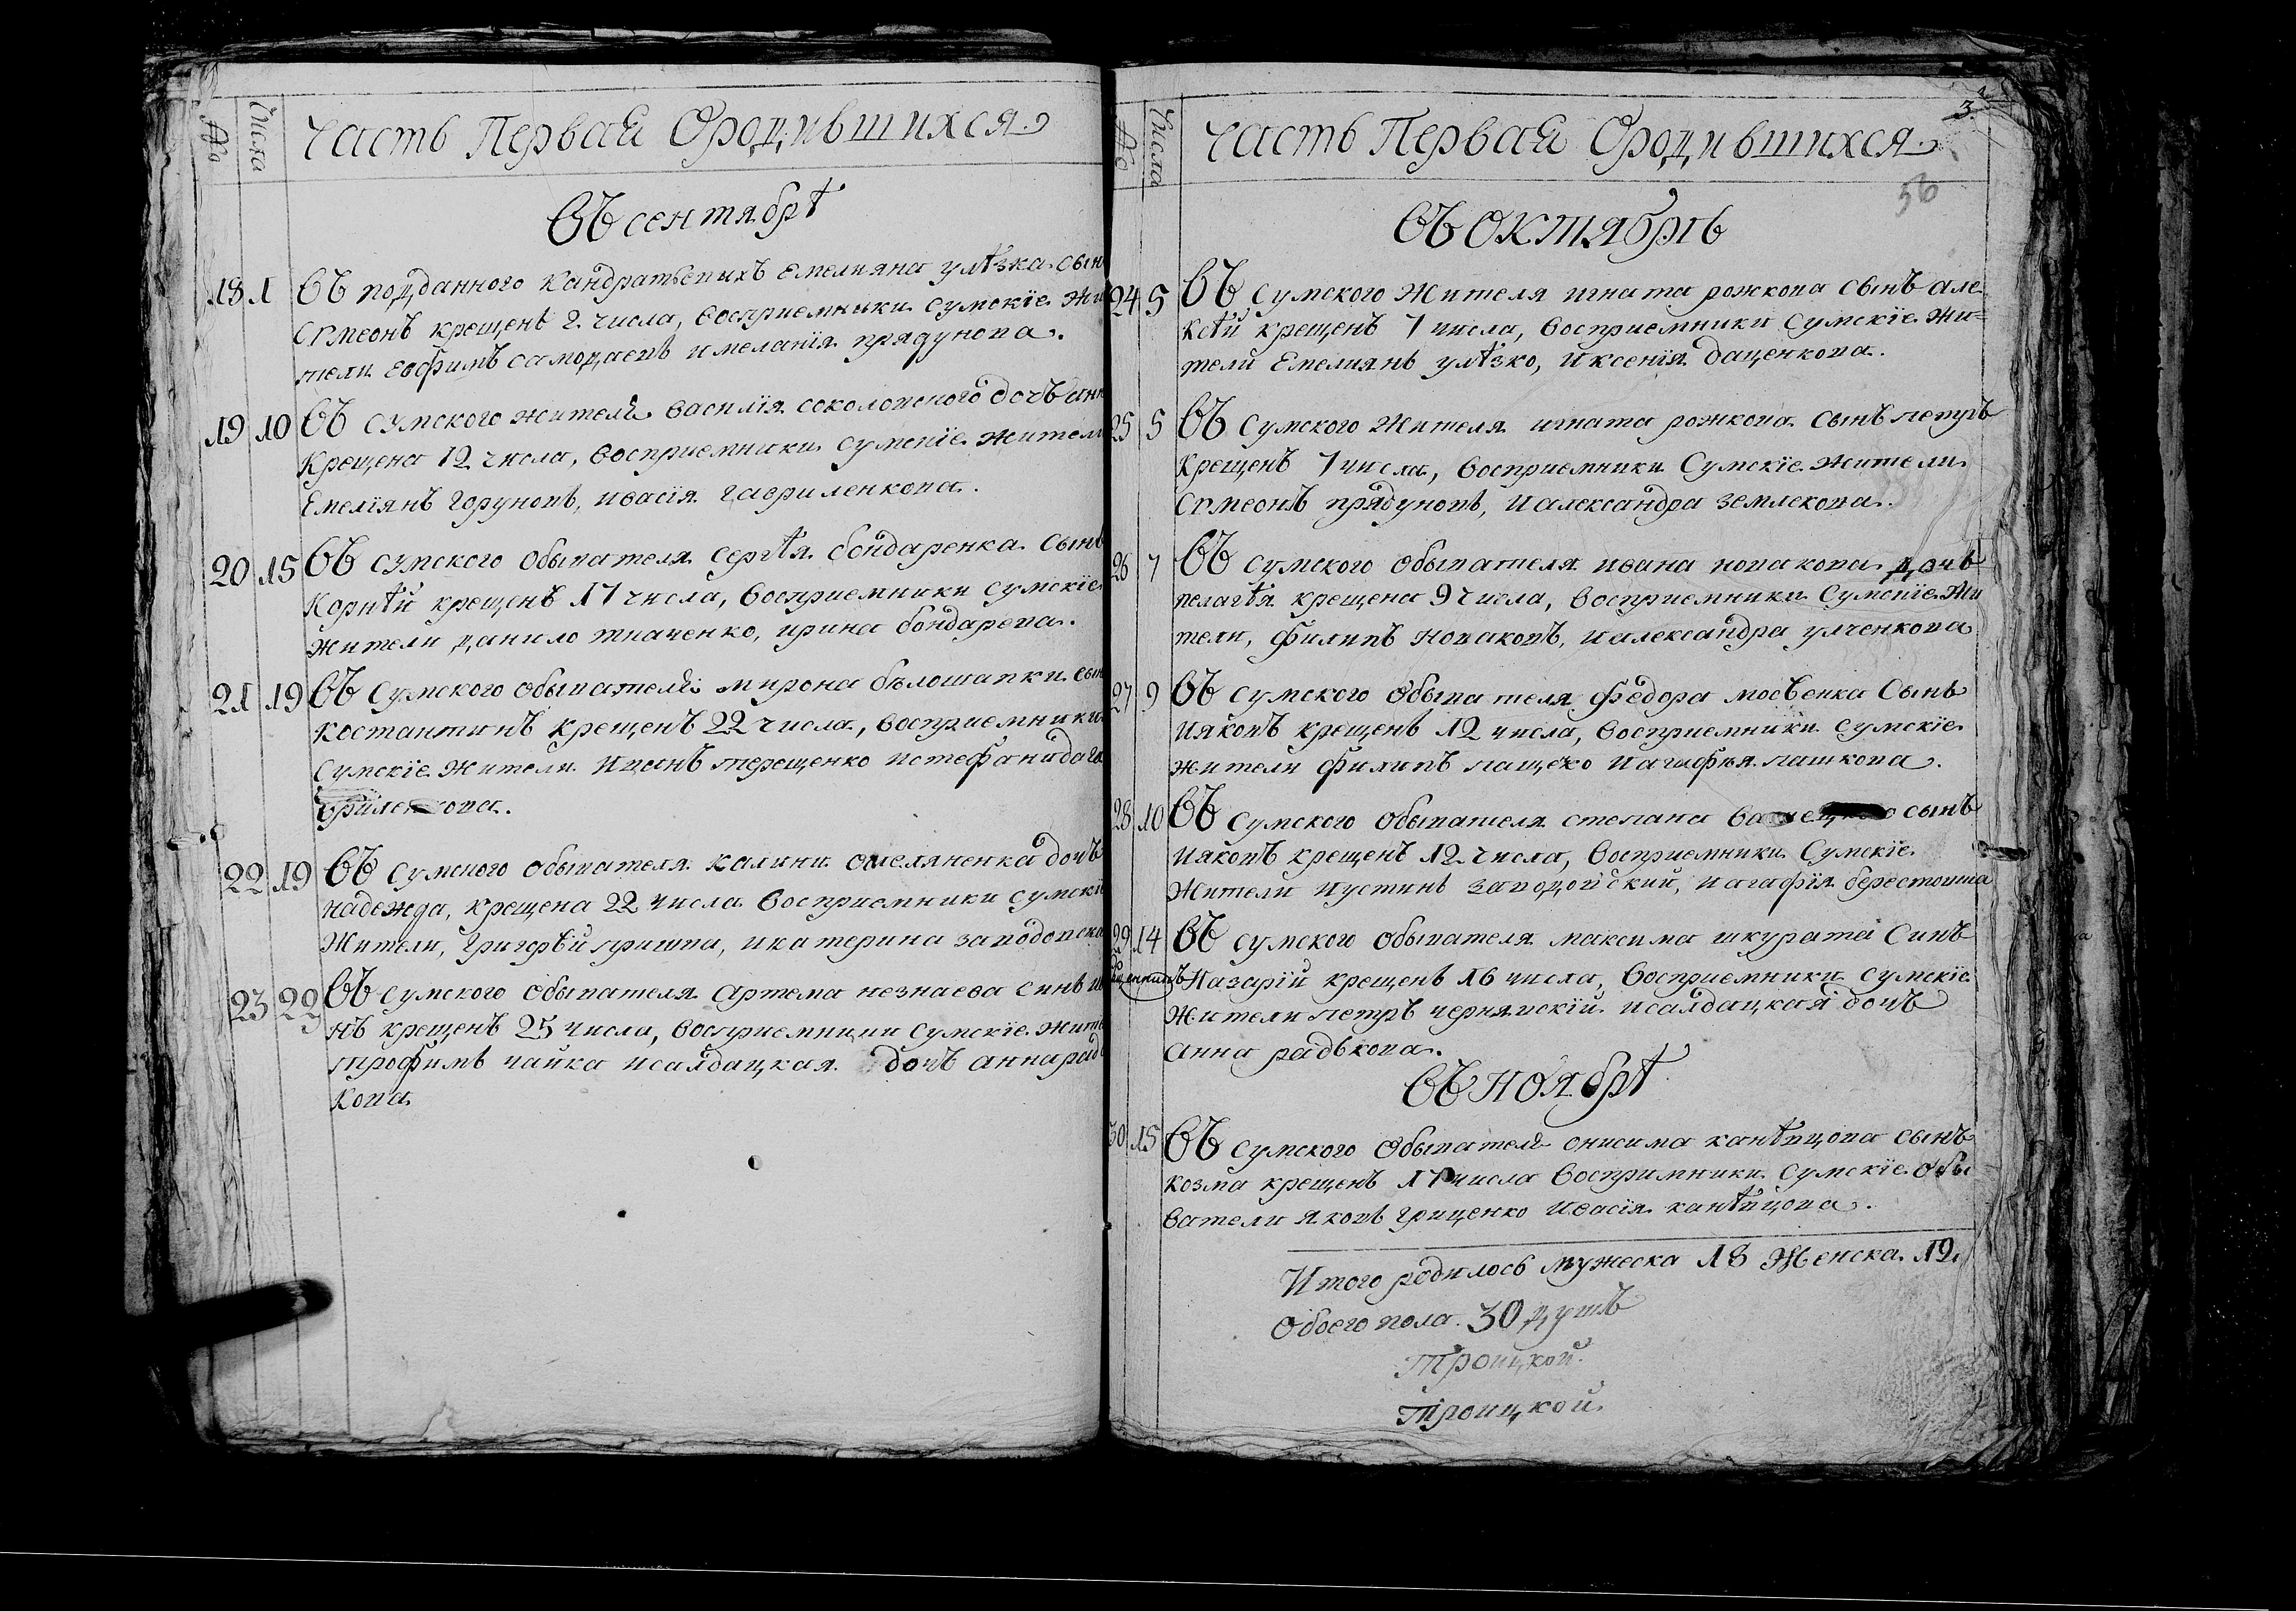 № Числа Часть Первая Ородившихся
Въ сентябрѣ
18 1 Въ подданного Кандратьевихъ Емелияна улѣзка сын
Сѵмеонъ крещенъ 2 числа, восприемники сумскіе жи
тели Евфимъ самодаевъ и меланія прядунова.
19 10 Въ сумского жителя василія соколовского дочъ анн
крещена 12 числа, восприемники сумскіе жители
Емеліянъ горуновъ, ивасія гавриленкова.
20 15 Въ сумского обывателя сергѣя бондаренка сынъ
Корнѣй крещенъ 17 числа, восприемники сумскіе
жители данило ткаченко, ирина бондарева.
21 19 Въ сумского обывателя мирона бѣлошапки сын
костантинъ крещенъ 22 числа, восприемники
Сумскіе жители Иванъ терещенко истефанида га
вриленкова.
22 19 Въ сумского обывателя калини омеляненка дочъ
надежда, крещена 22 числа восприемники сумскіе
Жители, Григорѣй пришпа, икатерина заводовска
23 22 Въ сумского обывателя Артема незнаева синъ
нъ крещенъ 25 числа, восприемници сумскіе жите
трофимъ чайка исалдацкая дочъ анна радь
кова
№ Числа Часть Первая Ородившихся
3
56
Въ октябрѣ
24 5 Въ сумского Жителя игната рожкова сынъ але
ксѣй крещенъ 7 числа, восприемники сумскіе жи=
тели Емелиянъ улѣзко, иксенія даценкова.
25 5 Въ сумского Жителя игната рожкова сынъ петръ
крещенъ 7 числа, восприемники Сумскіе жители
Сѵмеонъ прядуновъ, иалександра землекова.
26 7 Въ сумского обывателя ивана новакова дочъ
пелагѣя крещена 9 числа, восприемники Сумскіе жи
тели, филипъ новаковъ, иалександра улченкова
27 9 Въ сумского обывателя федора мосѣенка Сынъ
ияковъ крещенъ 12 числа, восприемники сумскіе
жители филипъ пащеко иагафья пашкова.
28 10 Въ сумского обывателя степана сынъ
ияковъ крещенъ 12 числа, восприемники Сумскіе
Жители иустинъ заводовский, иагафія берестовша
29 14 Въ сумского обывателя максима шкурата Синъ
Назарій крещенъ 16 числа, восприемники сумскіе
жители петръ чернявскій исалдацкая дочъ
анна радькова.
Въ ноябрѣ
30 15 Въ сумского обывателя онисима канѣвцова сынъ
козма крещенъ 17 числа воспримники сумскіе обы
ватели яковъ гриценко ивасія канѣвцова.
Итого родилось мужеска 18 Женска 12
обоего пола 30 душъ
Троицкой.
Троицкой.